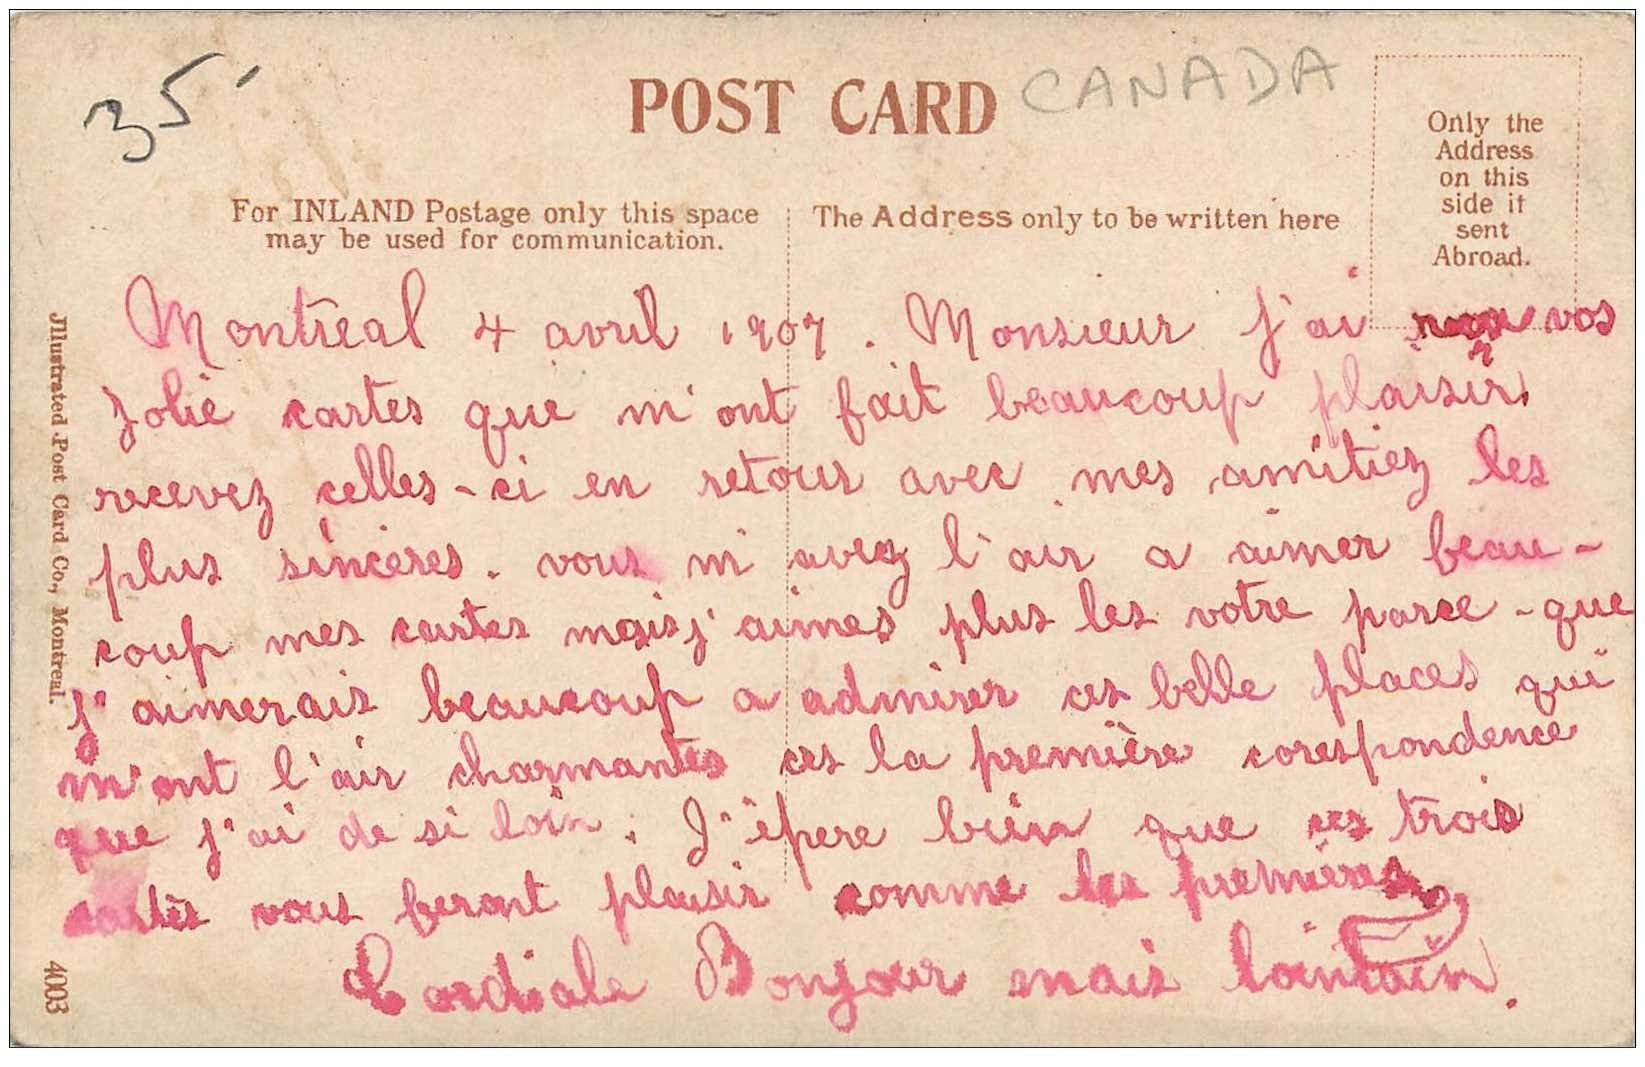 35
POST CARD
CANADA
Only the
Address
on this
side if
sent
Abroad.
For INLAND Postage only this space
may be used for communication.
The Address only to be written here
Montreal 4 avril 1907. Monsieur j'ai vos
jolie cartes que m'ont fait beaucoup plaisir
recevez celles-ci en retour avec mes amitiez les
plus sincères. vous m'avez l'air a aimer beau-
coup mes cartes mais j'aimes plus les votre parce-que
j'aimerais beaucoup a admirer ces belle places qui
m'ont l'air charmantes ces la première corespondence
que j'ai de si loin. J'èpere bien que ces trois
cartès vous feront plaisir comme les premières
Cordiale Bonjour mais lointain.
Illustrated Post Card Co., Montreal.
4003